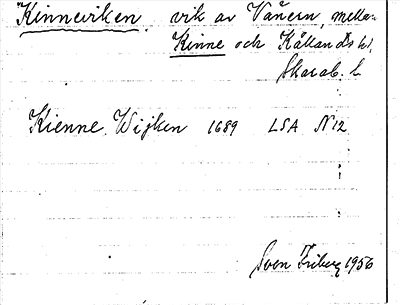 Kinneviken, vik av Vänern, mellan
Kinne och Kållands hd,
Skarab. l.
Kienne Wijken 1689 LSA N12
Sven Friberg 1956